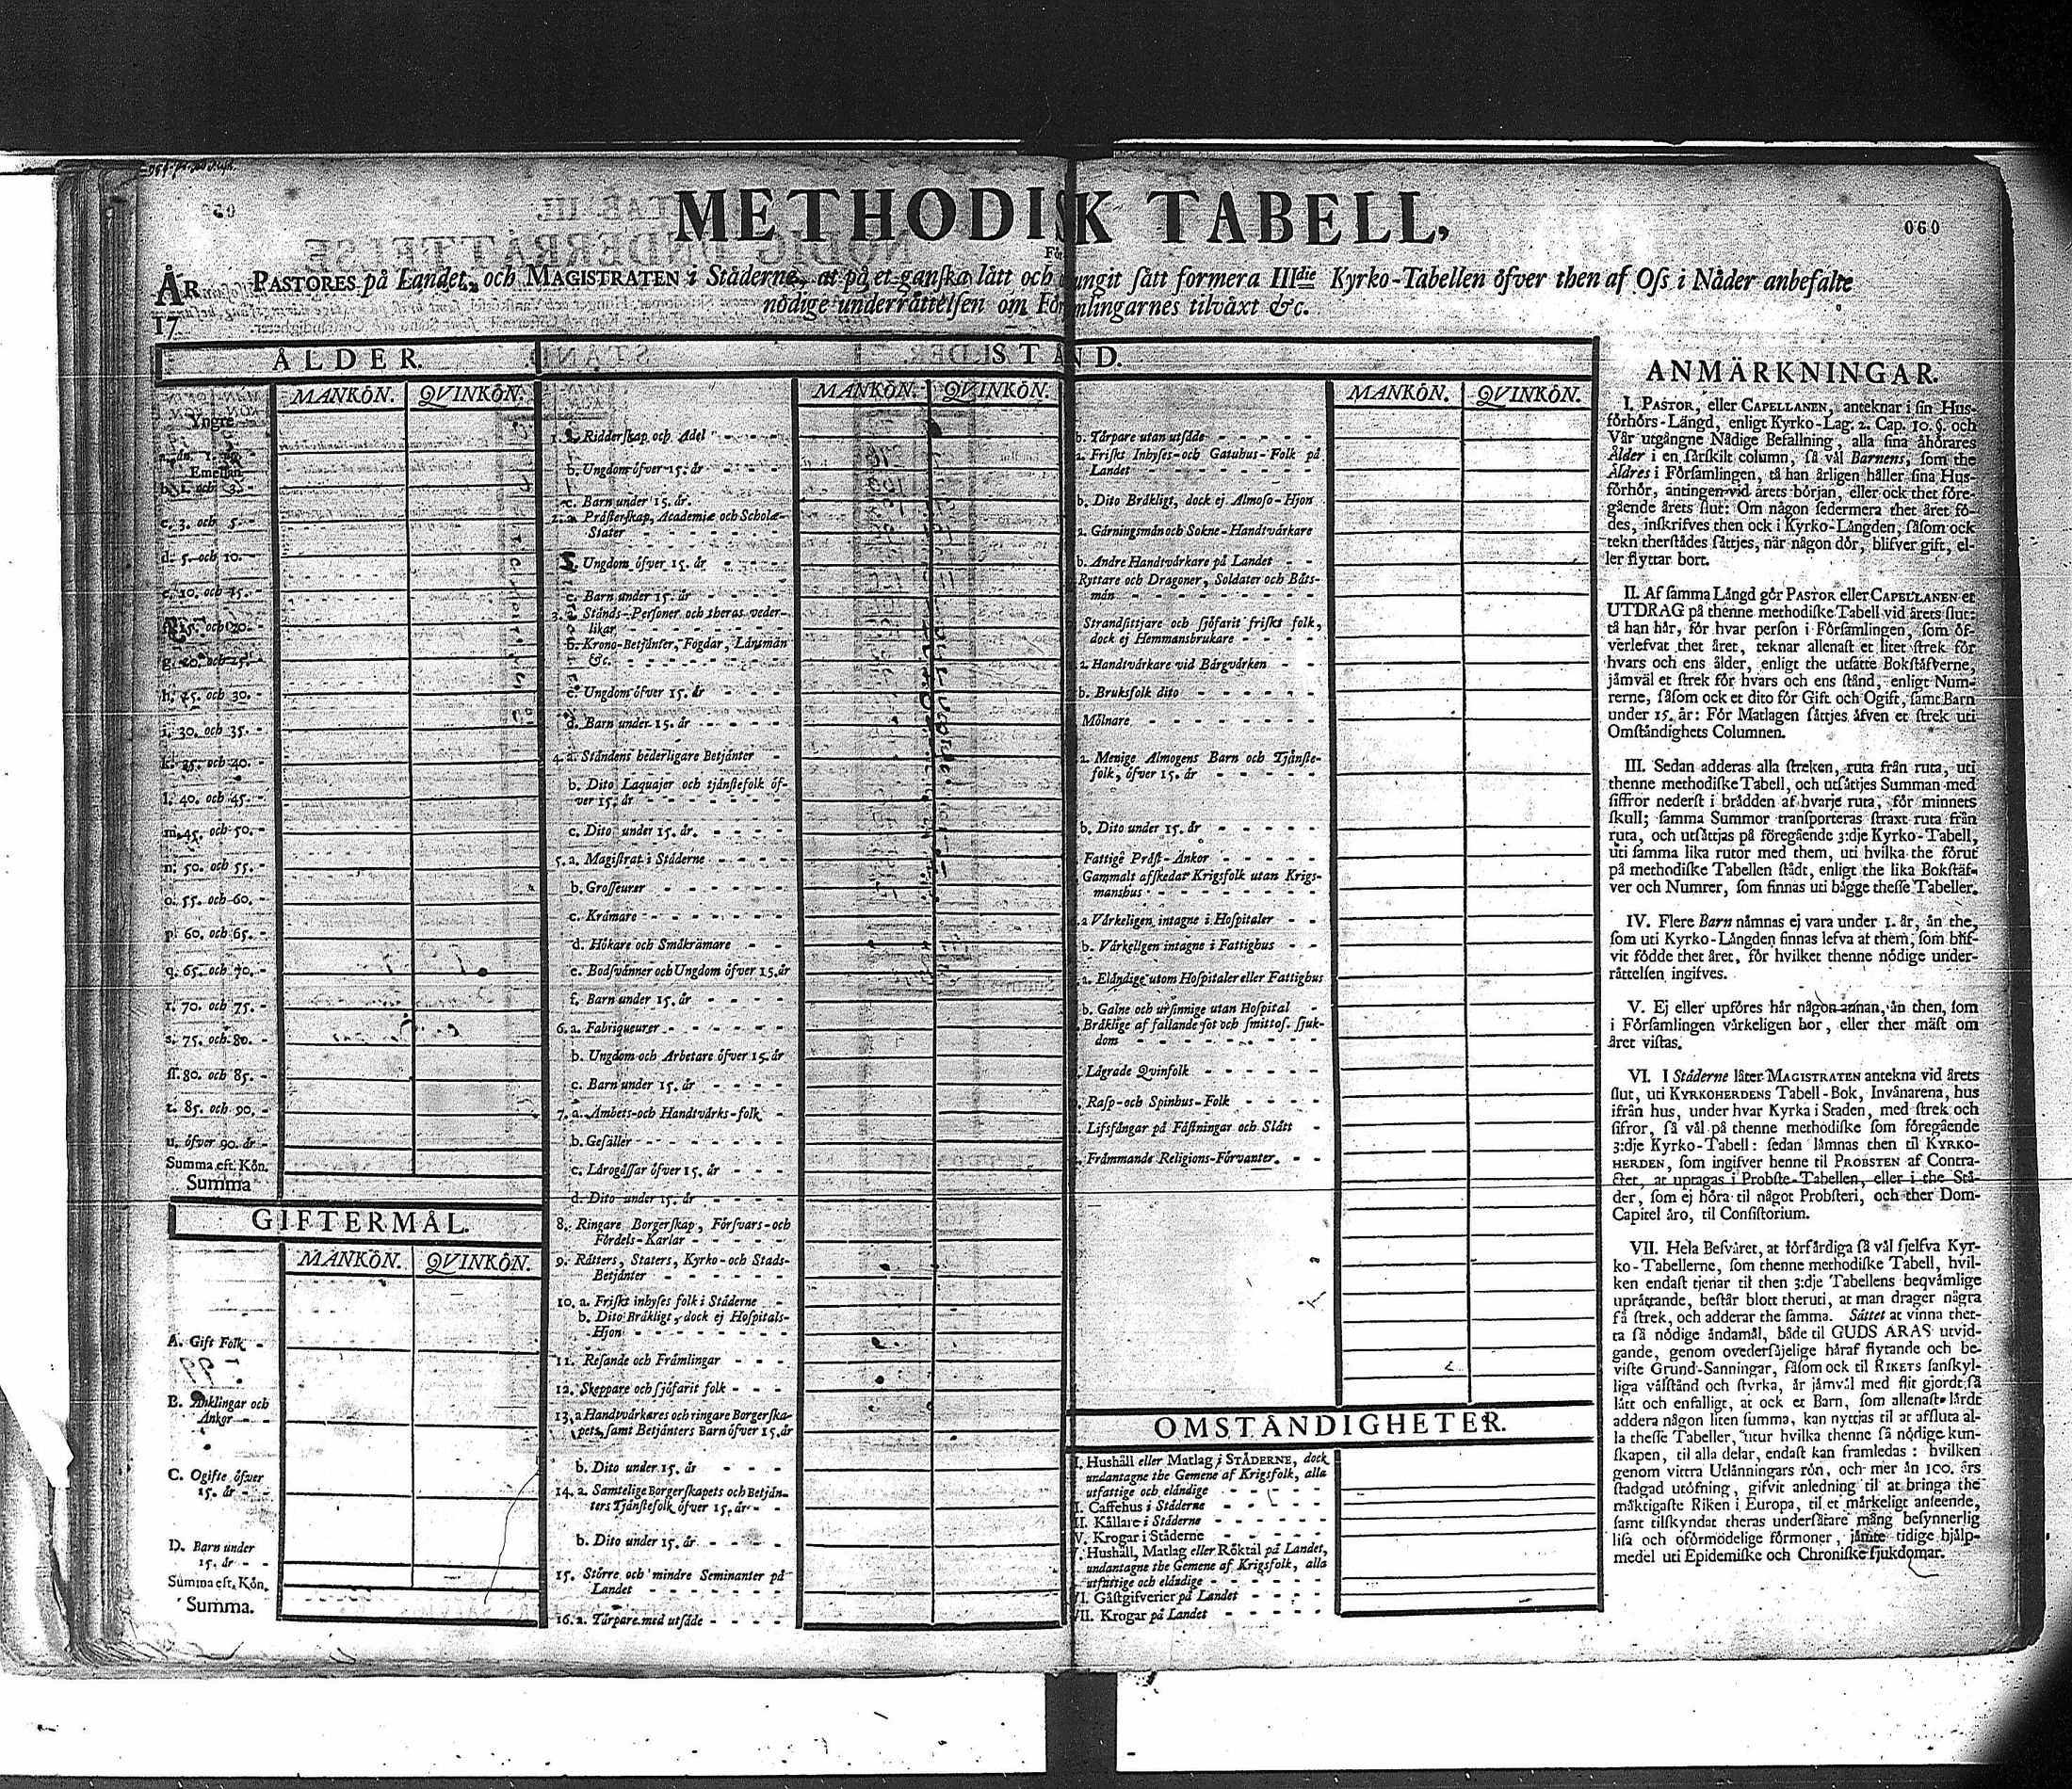 METHODISK TABELL,
060
För
ÅR PASTORES på Landet, och MAGISTRATEN i Städerne, at på et ganska lätt och tungit sätt formera III die Kyrko-Tabellen öfver then af Oss i Nåder anbefalte
17 nödige underrättelsen om Församlingarnes tilväxt &c.
ÅLDER.
MANKÖN. QVINKÖN.
Yngre
än 1. år
Emellan
b. 1. och 3.
c. 3. och 5.
d. 5. och 10.
e. 10. och 15.
f. 15. och 20.
g. 20. och 25.
h. 25. och 30.
i. 30. och 35.
k. 35. och 40.
l. 40. och 45.
m. 45. och 50.
n. 50. och 55.
o. 55. och 60.
p. 60. och 65.
q. 65. och 70.
r. 70. och 75.
s. 75. och 80.
ſſ. 80. och 85.
t. 85. och 90.
u. öfver 90. år
Summa eft. Kön.
Summa
GIFTERMÅL.
MANKÖN. QVINKÖN.
A. Gift Folk
B. Änklingar och
Änkor
C. Ogifte öfver
15. år
D. Barn under
15. år
Summa eft. Kön.
Summa.
STÅND.
MANKÖN. QVINKÖN.
1. a. Ridderskap och Adel
b. Ungdom öfver 15. år
c. Barn under 15. år.
2. a. Prästerskap, Academiæ och Scholæ-
Stater
b. Ungdom öfver 15. år
c. Barn under 15. år
3. a. Stånds-Personer och theras veder-
likar
b. Krono-Betjänter, Fogdar, Länsmän
&c.
c. Ungdom öfver 15. år
d. Barn under 15. år
4. a. Ståndens hederligare Betjänter
b. Dito Laquajer och tjänstefolk öf-
ver 15. år
c. Dito under 15. år.
5. a. Magistrat i Städerne
b. Grosseurer
c. Krämare
d. Hökare och Småkrämare
e. Bodsvänner och Ungdom öfver 15. år
f. Barn under 15. år
6. a. Fabriqueurer
b. Ungdom och Arbetare öfver 15. år
c. Barn under 15. år
7. a. Ämbets-och Handtvärks-folk
b. Gesäller
c. Lärogåssar öfver 15. år
d. Dito under 15. år
8. Ringare Borgerskap, Försvars-och
Fördels-Karlar
9. Rätters, Staters, Kyrko-och Stads-
Betjänter
10. a. Friskt inhyses folk i Städerne
b. Dito Bräkligt, dock ej Hospitals-
Hjon
11. Resande och Främlingar
12. Skeppare och sjöfarit folk
13. a Handtvärkares och ringare Borgerska-
pets, samt Betjänters Barn öfver 15. år
b. Dito under 15. år
14. a. Samtelige Borgerskapets och Betjän-
ters Tjänstefolk öfver 15. år
b. Dito under 15. år
15. Större och mindre Seminanter på
Landet
16. a. Tärpare med utsäde
MANKÖN. QVINKÖN.
b. Tärpare utan utsäde
a. Friskt Inhyses-och Gatuhus-Folk på
Landet
b. Dito Bräkligt, dock ej Almoso-Hjon
a. Gärningsmän och Sokne-Handtvärkare
b. Andre Handtvärkare på Landet
Ryttare och Dragoner, Soldater och Båts-
män
Strandsittjare och sjöfarit friskt folk,
dock ej Hemmansbrukare
a. Handtvärkare vid Bärgvärken
b. Bruksfolk dito
Mölnare
a. Menige Almogens Barn och Tjänste-
folk, öfver 15. år
b. Dito under 15. år
Fattige Präst-Änkor
Gammalt afskedat Krigsfolk utan Krigs-
manshus
a Värkeligen intagne i Hospitaler
b. Värkeligen intagne i Fattighus
a. Eländige utom Hospitaler eller Fattighus
b. Galne och ursinnige utan Hospital
Bräklige af fallande sot och smittos. sjuk-
dom
Lägrade Qvinfolk
Rasp-och Spinhus-Folk
Lifsfångar på Fästningar och Slått
Främmande Religions-Förvanter.
OMSTÄNDIGHETER.
I. Hushåll eller Matlag i STÄDERNE, dock
undantagne the Gemene af Krigsfolk, alla
utfattige och eländige
II. Caffehus i Städerne
III. Källare i Städerne
IV. Krogar i Städerne
V. Hushåll, Matlag eller Röktal på Landet,
undantagne the Gemene af Krigsfolk, alla
utfattige och eländige
VI. Gästgifverier på Landet
VII. Krogar på Landet
ANMÄRKNINGAR.
I. PASTOR, eller CAPELLANEN, anteknar i sin Hus-
förhörs-Längd, enligt Kyrko-Lag. 2. Cap. 10. §. och
Vår utgångne Nådige Befallning, alla sina åhörares
Ålder i en särskilt column, så väl Barnens, som the
Äldres i Församlingen, tå han årligen håller sina Hus-
förhör, antingen vid årets början, eller ock thet före-
gående årets slut: Om någon sedermera thet året fö-
des, inskrifves then ock i Kyrko-Längden, såsom ock
tekn therstädes sättjes, när någon dör, blifver gift, el-
ler flyttar bort.
II. Af samma Längd gör PASTOR eller CAPELLANEN et
UTDRAG på thenne methodiske Tabell vid årets slut:
tå han här, för hvar person i Församlingen, som öf-
verlefvat thet året, teknar allenast et litet strek för
hvars och ens ålder, enligt the utsatte Bokstäfverne,
jämväl et strek för hvars och ens stånd, enligt Num-
rerne, såsom ock et dito för Gift och Ogift, samt Barn
under 15. år: För Matlagen sättjes äfven et strek uti
Omständighets Columnen.
III. Sedan adderas alla streken, ruta från ruta, uti
thenne methodiske Tabell, och utsättjes Summan med
siffror nederst i brädden af hvarje ruta, för minnets
skull; samma Summor transporteras straxt ruta från
ruta, och utsättjas på föregående 3:dje Kyrko-Tabell,
uti samma lika rutor med them, uti hvilka the förut
på methodiske Tabellen stådt, enligt the lika Bokstäf-
ver och Numrer, som finnas uti bägge thesse Tabeller.
IV. Flere Barn nämnas ej vara under 1. år, än the,
som uti Kyrko-Längden finnas lefva at them, som blif-
vit födde thet året, för hvilket thenne nödige under-
rättelsen ingifves.
V. Ej eller upföres här någon annan, än then, som
i Församlingen värkeligen bor, eller ther mäst om
året vistas.
VI. I Städerne låter MAGISTRATEN antekna vid årets
slut, uti KYRKOHERDENS Tabell-Bok, Invånarena, hus
ifrån hus, under hvar Kyrka i Staden, med strek och
sifror, så väl på thenne methodiske som föregående
3:dje Kyrko-Tabell: sedan lämnas then til KYRKO-
HERDEN, som ingifver henne til PROBSTEN af Contra-
ctet, at uptagas i Probste-Tabellen, eller i the Stä-
der, som ej höra til något Probsteri, och ther Dom-
Capitel äro, til Consistorium.
VII. Hela Besväret, at förfärdiga så väl sjelfva Kyr-
ko-Tabellerne, som thenne methodiske Tabell, hvil-
ken endast tjenar til then 3:dje Tabellens beqvämlige
uprättande, består blott theruti, at man drager några
få strek, och adderar the samma. Sättet at vinna thet-
ta så nödige ändamål, både til GUDS ÄRAS utvid-
gande, genom ovedersäjelige häraf flytande och be-
viste Grund-Sanningar, såsom ock til RIKETS sanskyl-
liga välstånd och styrka, är jämväl med flit gjordt så
lätt och enfalligt, at ock et Barn, som allenast lärdt
addera någon liten summa, kan nyttjas til at afsluta al-
la thesse Tabeller, utur hvilka thenne så nödige kun-
skapen, til alla delar, endast kan framledas: hvilken
genom vittra Utlänningars rön, och mer än 100. års
stadgad utöfning, gifvit anledning til at bringa the
mäktigaste Riken i Europa, til et märkeligt anseende,
samt tilskyndat theras undersåtare mång besynnerlig
lisa och oförmödelige förmoner, jämte tidige hjälp-
medel uti Epidemiske och Chroniske sjukdomar.